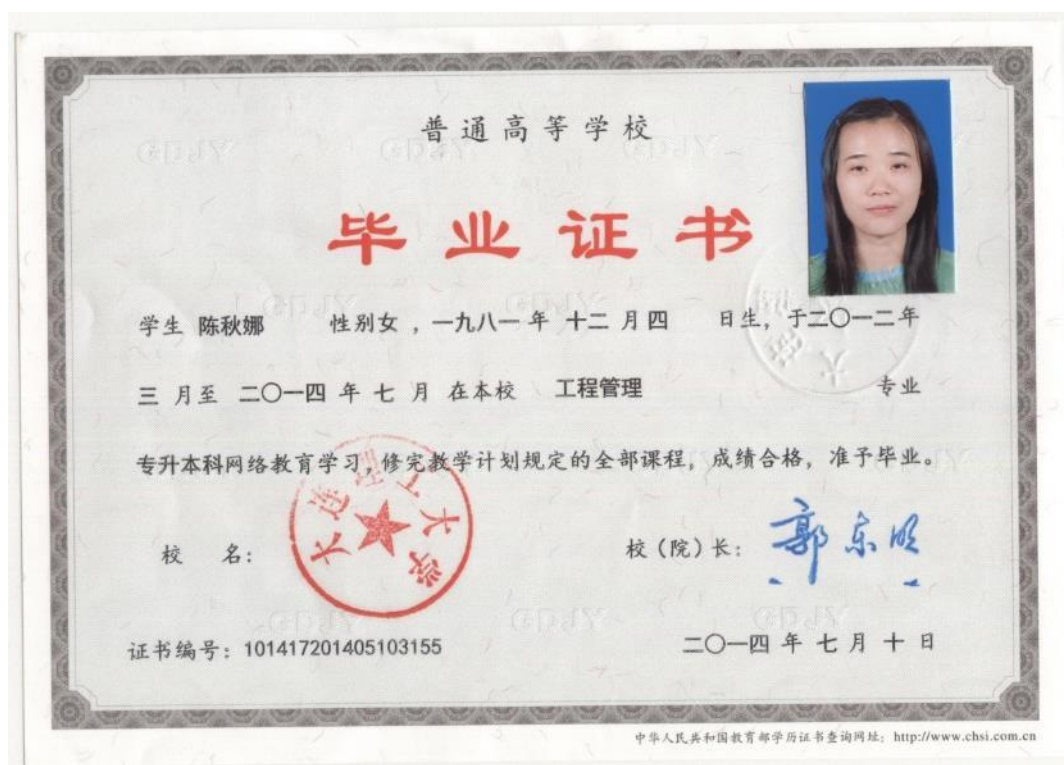 普通高等学校
毕业证书
学生 陈秋娜 性别女 ，一九八一 年 十二 月四 日生，于二〇一二年
三 月至 二〇一四 年 七 月 在本校 工程管理 专业
专升本科网络教育学习，修完教学计划规定的全部课程，成绩合格，准予毕业。
大连理工大学
校 名： 校（院）长： 郭东明
证书编号：101417201405103155 二〇一四 年 七 月 十 日
中华人民共和国教育部学历证书查询网址：http://www.chsi.com.cn